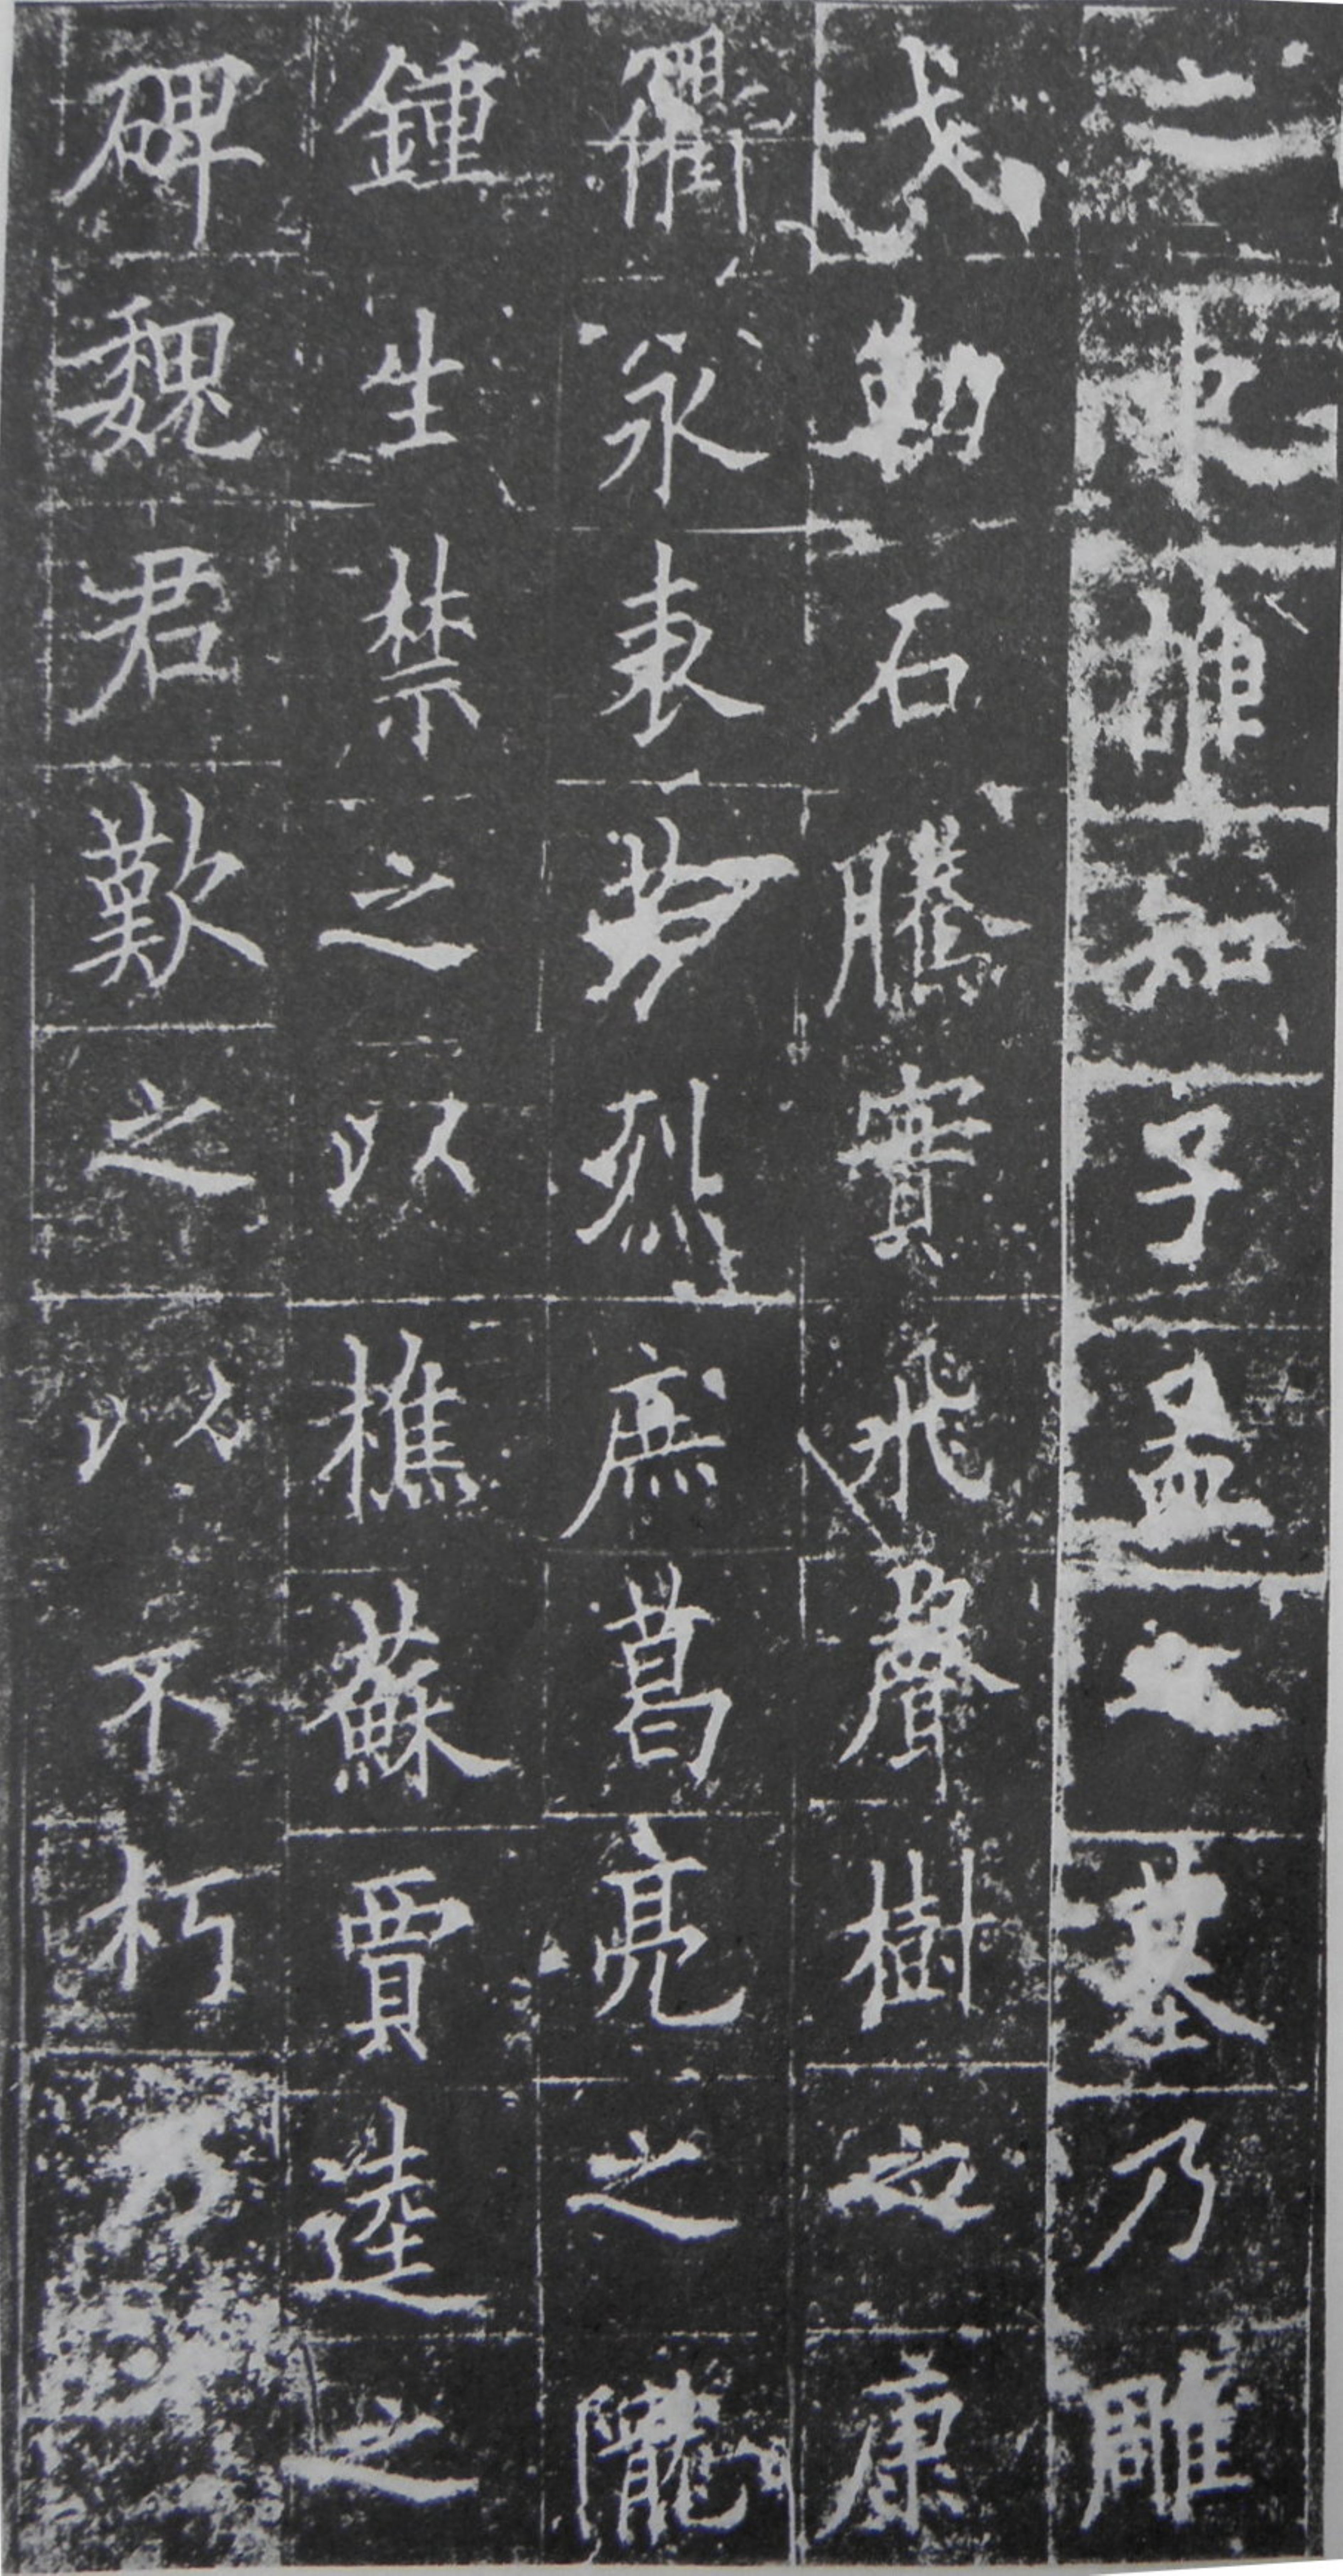 之東惟知子孟之墓乃雕
戈勒石騰實飛聲樹之康
衢永表芳烈庶葛亮之隴
鍾生禁之以樵蘇賈逵之
碑魏君歎之以不朽